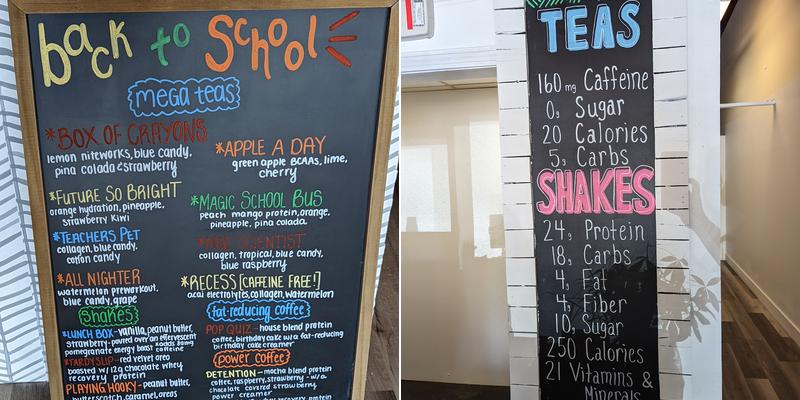 back to School
mega teas
*BOX OF CRAYONS
lemon niteworks, blue candy,
pina colada & strawberry
*FUTURE SO BRIGHT
orange hydration, pineapple,
strawberry kiwi
*TEACHERS PET
collagen, blue candy,
cotton candy
*ALL NIGHTER
watermelon preworkout,
blue candy, grape
*APPLE A DAY
green apple BCAAs, lime,
cherry
*MAGIC SCHOOL BUS
peach mango protein, orange,
pineapple, pina colada
*MAD SCIENTIST
collagen, tropical, blue candy,
blue raspberry
*RECESS [CAFFEINE FREE!]
acai electrolytes, collagen, watermelon
shakes
*LUNCH BOX - vanilla, peanut butter,
strawberry - poured over an effervescent
pomegranate energy boost *adds 80mg caffeine
*TARDY SLIP - red velvet oreo
boosted w/ 12g chocolate whey
recovery protein
PLAYING HOOKY - peanut butter,
butterscotch, caramel, oreos
fat-reducing coffee
POP QUIZ - house blend protein
coffee, birthday cake w/ a fat-reducing
birthday cake creamer
power coffee
DETENTION - mocha blend protein
coffee, raspberry, strawberry - w/ a
chocolate covered strawberry
power creamer
TEAS
160mg Caffeine
0g Sugar
20 Calories
5g Carbs
SHAKES
24g Protein
18g Carbs
4g Fat
4g Fiber
10g Sugar
250 Calories
21 Vitamins &
Minerals